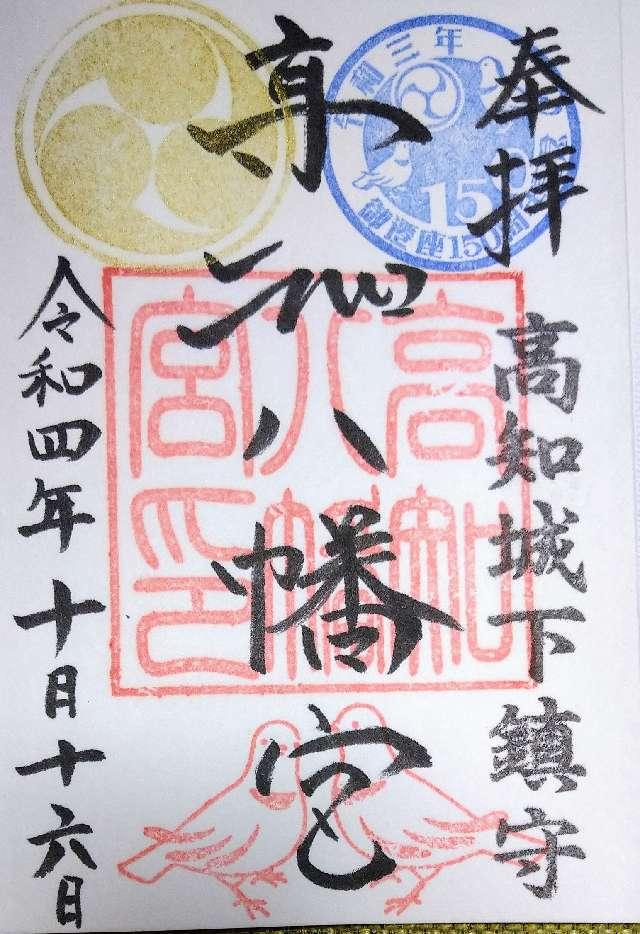 奉拝
高知城下鎮守
高知八幡宮
令和四年十月十六日
令和三年
御遷座150周
150
高知八幡宮印